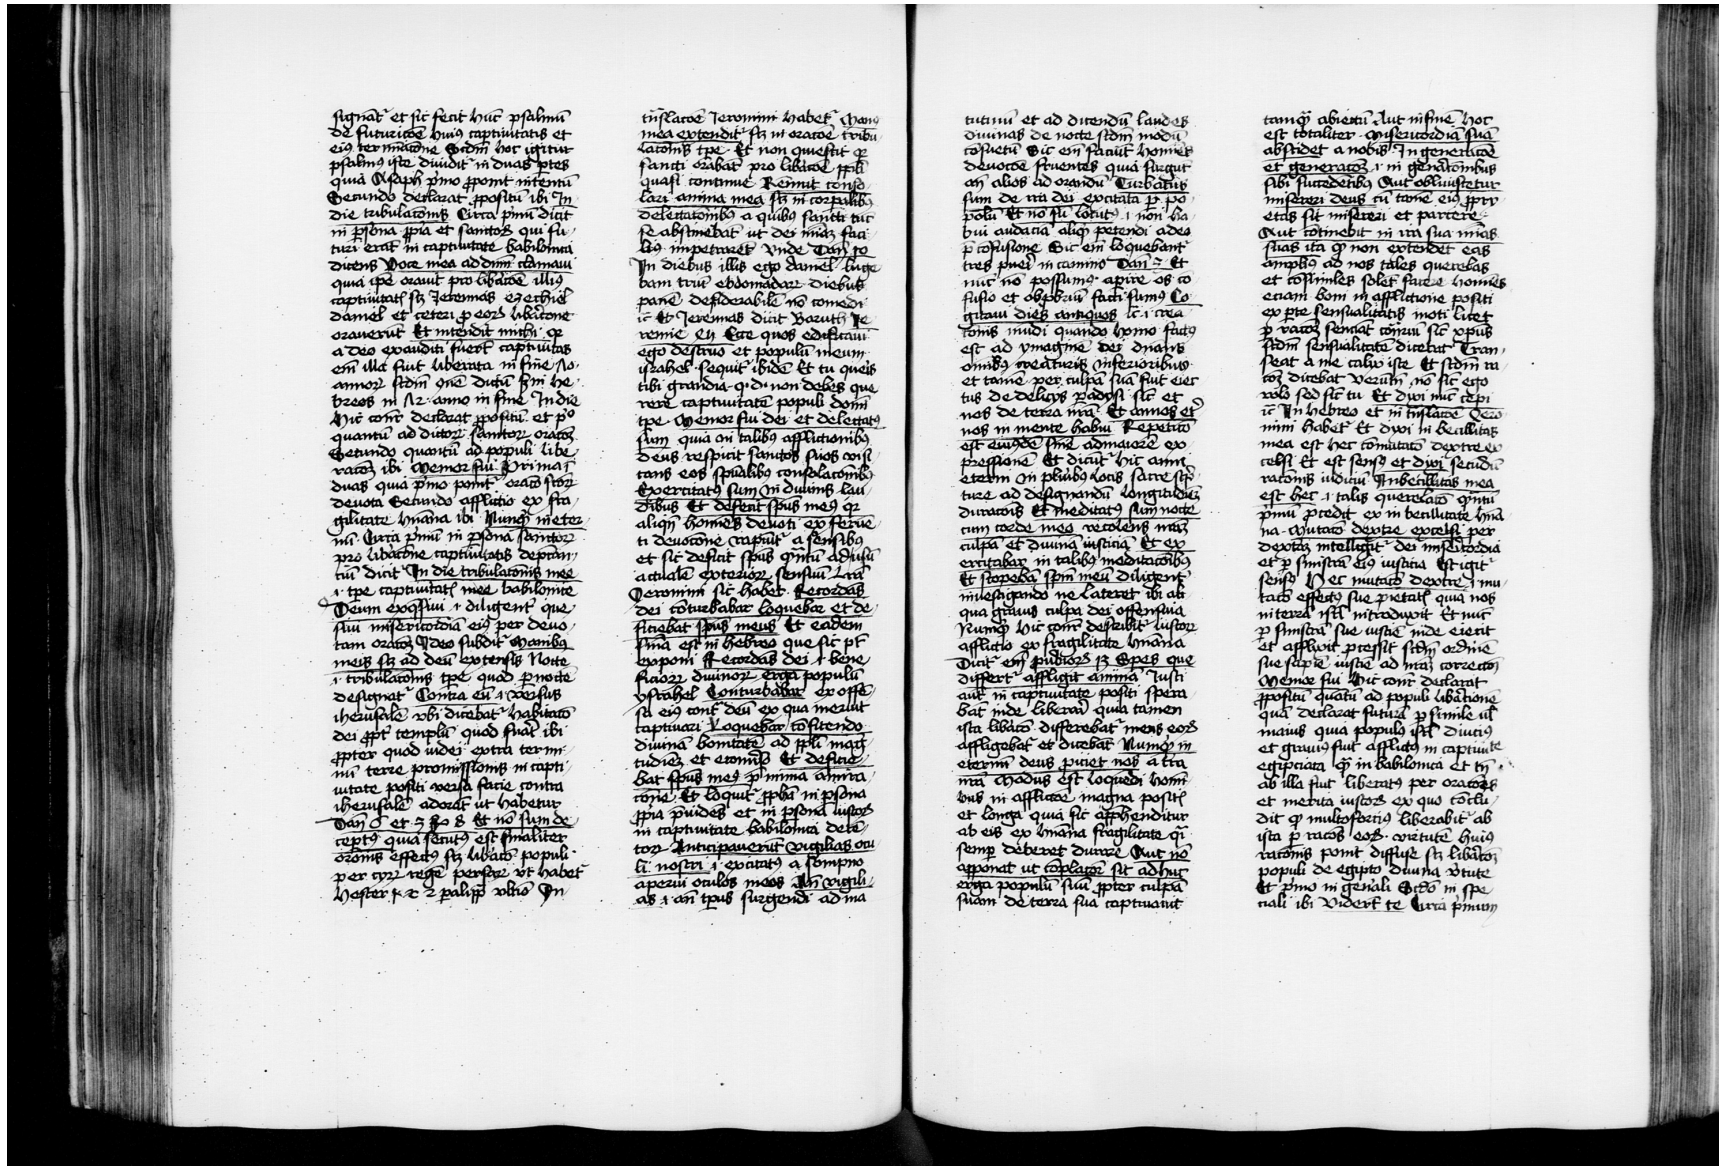 signatᷣ et sic fecit hūc psalmū
de futuricōe huiꝰ captiuitatis et
eiꝰ terminacōne Scd̄m hoc igitur
psalmꝰ iste diuiditᷣ in duas ꝑtes
quia Asaph p̄mo ꝓponit intentū
Secundo declarat ꝓpositū ibi In
die tribulacōnis Circa p̄mū dicit
in ꝑsona ꝓpia et sanctoꝝ qui fu-
turi erāt in captiuitate babilonica
dicens Voce mea ad dn̄m clamaui
quia ip̄e orauit pro libacōe illiꝰ
captiuitatꝭ sꝫ Jeremias ezechiel
daniel et ceteri ꝓ eoꝝ libacōne
orauerūt Et intendit michi qꝛ
a deo exauditi fuerūt captiuitas
em̄ illa fuit liberata in fine 70
annoꝝ
breos in anno in fine In die
hic cōnᷣ declarat ꝓpositū et pᵒ
quantū ad ductoꝝ sanctoꝝ oracōꝫ
Secundo quantū ad populi libe-
racōꝫ ibi Memor fui Prima ī
duas quia p̄mo ponitᷣ oracō scoꝝ
deuota Secundo afflictio ex fra-
gilitate hūana ibi Nunqͥd in eter-
nū Circa p̄mū in ꝑsona sanctoꝝ
pro libacōne captiuitatis depcan-
tiū dicit In die tribulacōnis mee
.i. tꝑe captiuitatꝭ mee babilonice
Deum exqͥsiui .i. diligentᷣ que-
siui misericordiā eiꝰ per deuo-
tam oracōꝫ Ideo subditᷣ Manibꝰ
meis sꝫ ad deū extensis Nocte
.i. tribulacōnis tꝑe quod ꝑ nocte
designatᷣ Contra eū .i. versus
iherusalē vbi dicebatᷣ habitacō
dei ꝓptᷣ templū quod fuat ibi
ꝓpter quod iudei extra termi-
nū terre promissionis in capti-
uitate positi versa facie contra
iherusalē adorāt ut habetur
Dan̄ 6 et 3 Rͦ 8 Et nō sum de-
ceptꝰ quia secutꝰ est finaliter
oronis effectꝰ sꝫ libacō populi
per cyꝝ regē persaꝝ vt habetᷣ
Hester et 2 ꝑalipᵒ vltiō In
tn̄slacōe Jeronimi habetᷣ Manꝰ
mea extenditᷣ sꝫ in oracōe tribu-
lacōnis tꝑe Et non quiescit qꝛ
sancti orabāt pro libacōe ppl̄i
quasi continue Rennuit conso-
lari anima mea sꝫ in corꝑalibꝰ
delectacōnibꝰ a quibꝰ sancti tūc
se abstinebāt ut dei mīaꝫ faci-
liꝰ impetraret Vnde Dan̄ 10
In diebus illis ego daniel luge-
bam triū ebdomadaꝝ diebus
panē desiderabilē nō comedi
ic̄ Et Jeremias dicit Baruth Je-
remie 45 Ecce quos edificaui
ego destruo et populū meum
israhel sequitᷣ ibidē Et tu queris
tibi grandia .q.d. non debes que-
rere captiuitatē populi domī
tꝑe Memor fui dei et delectatꝰ
sum quia in talibus afflictionibꝰ
deus respicit sanctos suos visi-
tans eos spūalibꝰ consolacōnibꝰ
Exercitatꝰ sum in diuinis lau-
dibus Et defecit spūs meꝰ qꝛ
aliqn̄ homīes deuoti ex feruē-
ti deuocōne rapiūtᷣ a sensibꝰ
et sic deficit spūs qͣntū ad usū
actualē exterioꝝ sensuū Lrā
Jeronimi sic habet Recordās
dei cōturbabar loquebar et de-
ficiebat spūs meus Et eadem
sn̄ia est in hebreo que sic pt̄
exponi Recordās dei .i. bene-
ficioꝝ diuinoꝝ erga populū
ysrahel Conturbabar ex offē-
sa eiꝰ contᷣ deū ex qua meruit
captiuari Loquebar cōfitendo
diuinā bonitatē ad ppl̄i mag-
tudieꝫ et econuso Et deficie-
bat spūs meꝰ p̄ nimia amira-
cōne Et loquitᷣ ꝓph̄a in ꝑsona
ꝓpia p̄uidēs et in ꝑsona iustoꝝ
in captiuitate babilonica detē-
toꝝ Anticipauerūt vigilias ocu-
li nostri .i. excitatꝰ a sompno
aperui oculos meos An̄ vigili-
as .i. an̄ tp̄us surgendi ad ma-
tutinū et ad dicendū laudes
diuinas de nocte scd̄m modū
cōsuetū Sic em̄ faciūt homīes
deuocōe feruentes quia surgūt
an̄ alios ad orandū Turbatus
sum de ira dei excitata ꝑ po-
polū Et nō sū locutꝰ .i. non ha-
bui audaciā aliqͥd petendi a deo
p̄ cōfusione Sic em̄ loquebantᷣ
tres pueri in camino Dan̄ 3 Et
nūc nō possumꝰ apire os cō-
fusio et obꝓbriū facti sumꝰ Co-
gitaui dies antiquos sc̄ .i. crea-
cōnis mūdi quando homo factꝰ
est ad ymaginē dei dn̄ans
omibꝰ creaturis inferioribus
et tamē per culpā suā fuit eiec-
tus de delicijs ꝑadysi sic̄ et
nos de terra nr̄a Et annos et̄-
nos in mente habui Repeticō
est eiusdē sn̄ie ad maiorē ex-
pressionē Et dicūtᷣ hic anni
eterni in pluribꝰ locis sacre sc̄p-
ture ad designandū longitudieꝫ
duracōis Et meditatꝰ sum nocte
cum corde meo recolens nr̄am
culpā et diuinā iusticiā Et ex-
ercitabar in talibꝰ meditacōibꝰ
Et scopebā spm̄ meū diligentᷣ
inuestigando ne lateret ibi ali-
qua grauis culpa dei offensiua
Nunqͥd hic cōnᷣ describitᷣ iustoꝝ
afflictio ex fragilitate hūana
Dicitᷣ em̄ ꝓuerbioꝝ 13 Spes que
differtᷣ affligit animā Justi
aūt in captiuitate positi spera-
bāt inde liberari quia tamen
ista libacō differebatᷣ mens eoꝝ
affligebatᷣ et dicebat Nunqͥd in
eternū deus ꝓiciet nos a tra
nr̄a Modus est loquēdi homi-
bus in afflictōe magna positꝭ
et longa quia sic apphenditur
ab eis ex hūana fragilitate qͣi
semꝑ deberet durare Aut nō
apponat ut cōplacōꝝ sit adhuc
erga populū suū ꝓpter culpā
suam de terra sua captiuauit
tamqͣ abiectū Aut in finē hoc
est totaliter Misericordiā suā
abscidet a nobis In generacōe
et generacōꝫ .i. in gen̄acōnibus
sibi succedētibꝰ Aut obliuiscetur
misereri deus cū tamē eiꝰ ꝓpri-
etas sit misereri et parcere
Aut cōtinebit in ira sua mīas
suas ita qͫ non extendēt eas
amplius ad nos tales querelas
et cōsimiles solēt facere homīes
eciam boni in afflictione positi
ex ꝑte sensualitatis moti licet
ꝑ racōꝫ senciāt cōtrariū sic̄ xp̄us
scd̄m sensualitatē dicebat Tran-
seat a me calix iste Et scd̄m ra-
cōꝫ dicebat Verūtn̄ nō sic̄ ego
volo sed sic̄ tu Et dixi nūc cepi
ic̄ In hebreo et in tn̄slacōe Jero-
nimi habetᷣ Et dixi in becillitas
mea est hec cōmutacō dextre ex-
celsi Et est sensꝰ et dixi secūdū
racōnis iudiciū Inbecillitas mea
est hec .i. talis querelacō qͣntū
p̄mū pcedit ex in becillitate hūa-
na Mutacō dextre excelsi per
dextraꝫ intelligitᷣ dei misericordia
et ꝑ sinistrā eiꝰ iusticia Est igitᷣ
sensꝰ Hec mutacō dextre .i. mu-
tacō effectꝰ sue pietatꝭ quia nos
in terrā isrl̄ introduxit Et nūc
ꝑ sinistrā sue iusticie inde eiecit
et afflixit pcessit scd̄m ordinē
sue sapīe iusticie ad nr̄aꝫ correctōꝫ
Memor fui Hic cōnᷣ declarat
ꝓpositū quātū ad populi libacōnē
quā declarat futurā ꝑ simile ul̄
maius quia populꝰ isrl̄ diuciꝰ
et grauiꝰ fuit afflictꝰ in captiuite
egipciaca qͣ in babilonica et tn̄
ab illa fuit liberatꝰ per oracōes
et merita iustoꝝ ex quo cōclu-
dit qͫ multoforciꝰ liberabitᷣ ab
ista ꝑ racōs eoꝝ virtutē huiꝰ
racōnis ponit diffuse sꝫ libacōꝫ
populi de egipto diuina v̄tute
Et p̄mo in gen̄ali Scd̄o in spe-
ciali ibi Viderūt te Circa p̄mum